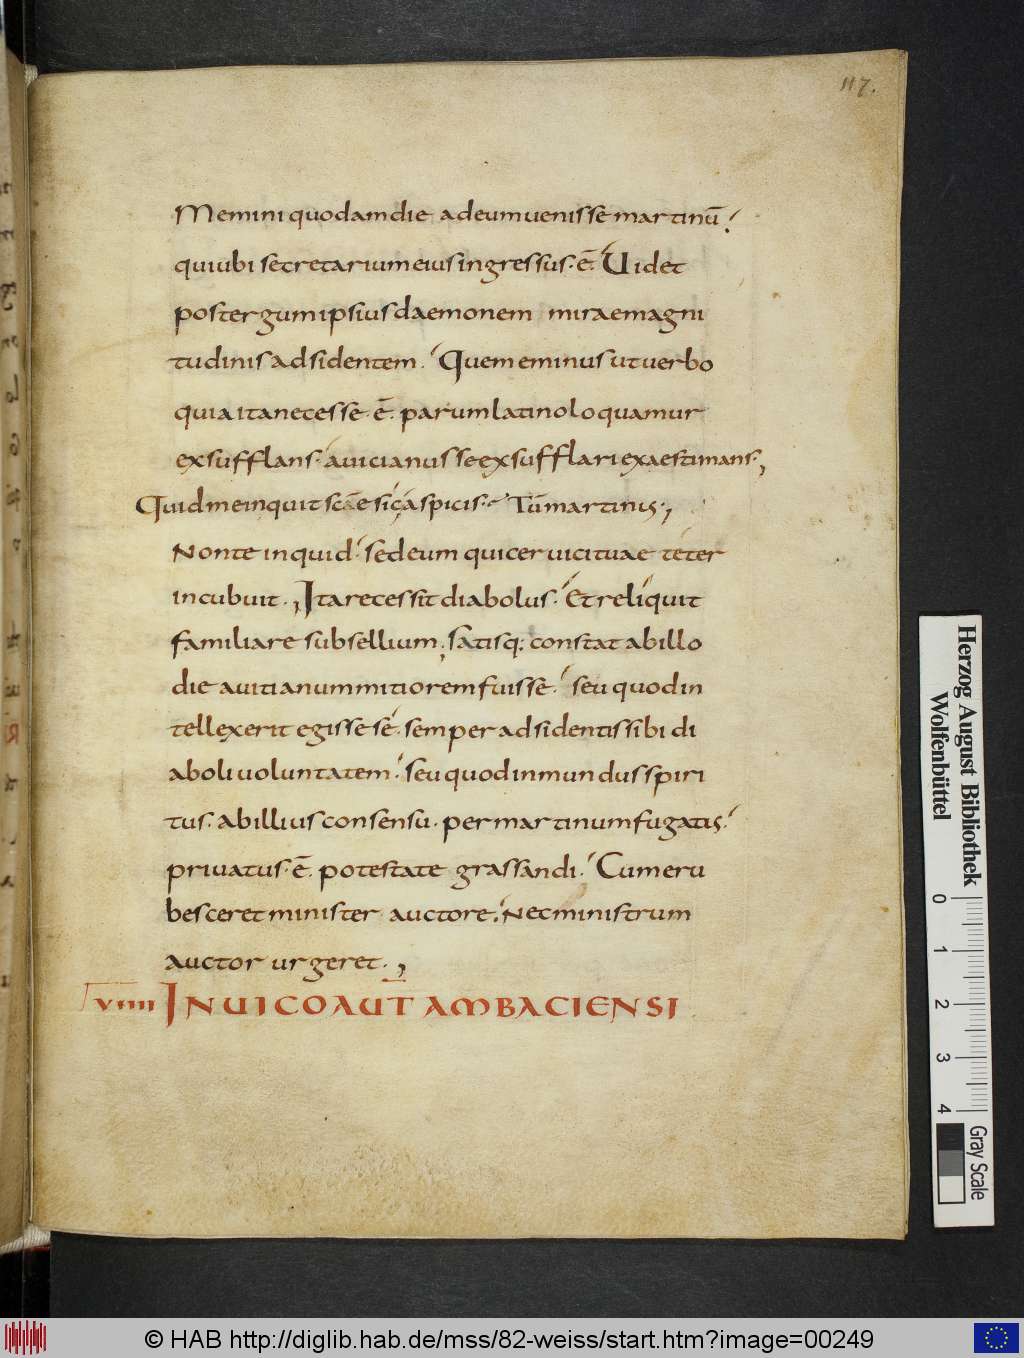 117.
Memini quodam die ad eum uenisse martinū.
qui ubi secretarium eius ingressus · ē · Uidet
post ergum ipsius daemonem mirae magni
tudinis adsidentem · Quem eminus ut uerbo
quia ita necesse · ē · parum latino loquamur
exsufflans · auicianus se exsufflari exaestimans ·,
Quid me inquit scāe sic aspicis · Tū martinus ·,
Non te inquid · sed eum qui ceruici tuae teter
incubuit ·, Ita recessit diabolus · Et reliquit
familiare subsellium ; satisq: constat ab illo
die auitianum mitiorem fuisse · seu quod in
tellexerit egisse sē · semper adsidentis sibi di
aboli uoluntatem · seu quod inmundus spiri
tus · ab illius consensu · per martinum fugatis ·
priuatus · ē · potestate grassandi · Cum eru
besceret minister auctore · Nec ministrum
auctor urgeret ·,
VIIII IN UICO AUT AMBACIENSI
Herzog August Bibliothek
Wolfenbüttel
0 1 2 3 4
Gray Scale
© HAB http://diglib.hab.de/mss/82-weiss/start.htm?image=00249